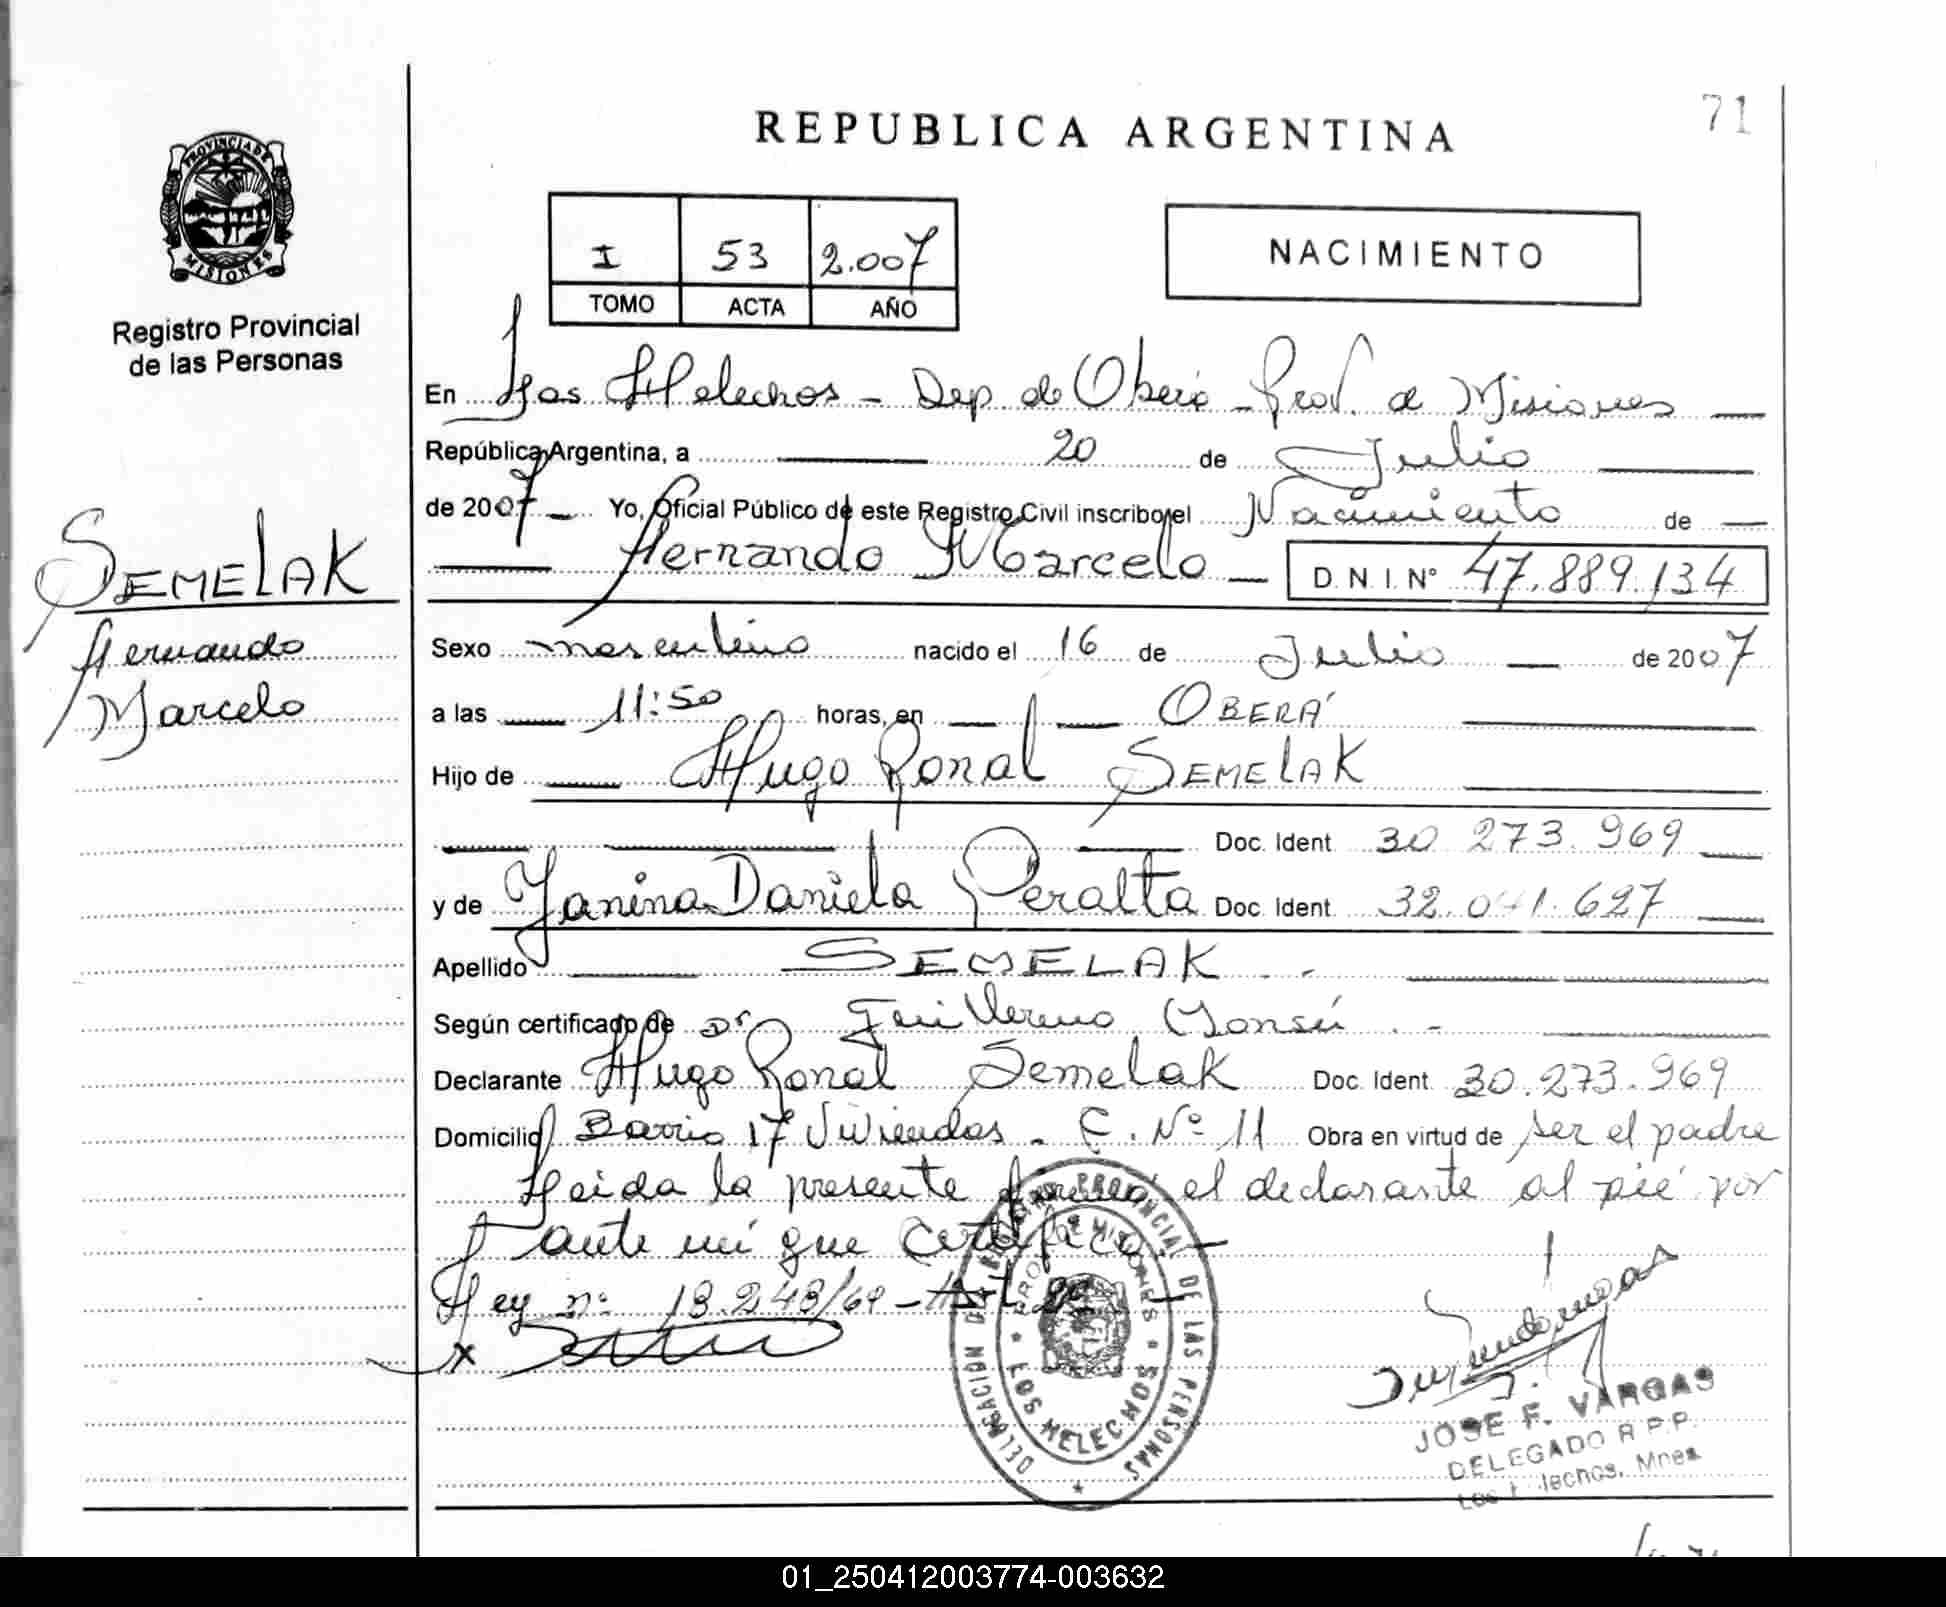 71
REPUBLICA ARGENTINA
PROVINCIA DE
MISIONES
Registro Provincial
de las Personas
I 53 2.007
TOMO ACTA AÑO
NACIMIENTO
En Los Helechos - Dep. de Oberá - Prov. de Misiones
República Argentina, a 20 de Julio
de 2007 Yo, Oficial Público de este Registro Civil inscribo el Nacimiento de
Hernando Marcelo D.N.I. Nº 47.889.134
SEMELAK
Hernando
Marcelo
Sexo masculino nacido el 16 de Julio de 2007
a las 11:50 horas, en OBERÁ
Hijo de Hugo Ronal SEMELAK
Doc. Ident 30 273.969
y de Yanina Daniela Peralta Doc. Ident 32.041.627
Apellido SEMELAK
Según certificado de Dr Guillermo
Declarante Hugo Ronal Semelak Doc. Ident 30.273.969
Domicilio Barrio 17 Viviendas - C. Nº 11 Obra en virtud de ser el padre
Leida la presente el declarante al pié por
ante mí que Certifico -
Ley nº 18.248/69 - Art.
x
DELEGACION DEL REGISTRO PROVINCIAL DE LAS PERSONAS
PROV. DE MISIONES
LOS HELECHOS
JOSE F. VARGAS
DELEGADO R.P.P.
Los Helechos, Mnes
01_250412003774-003632